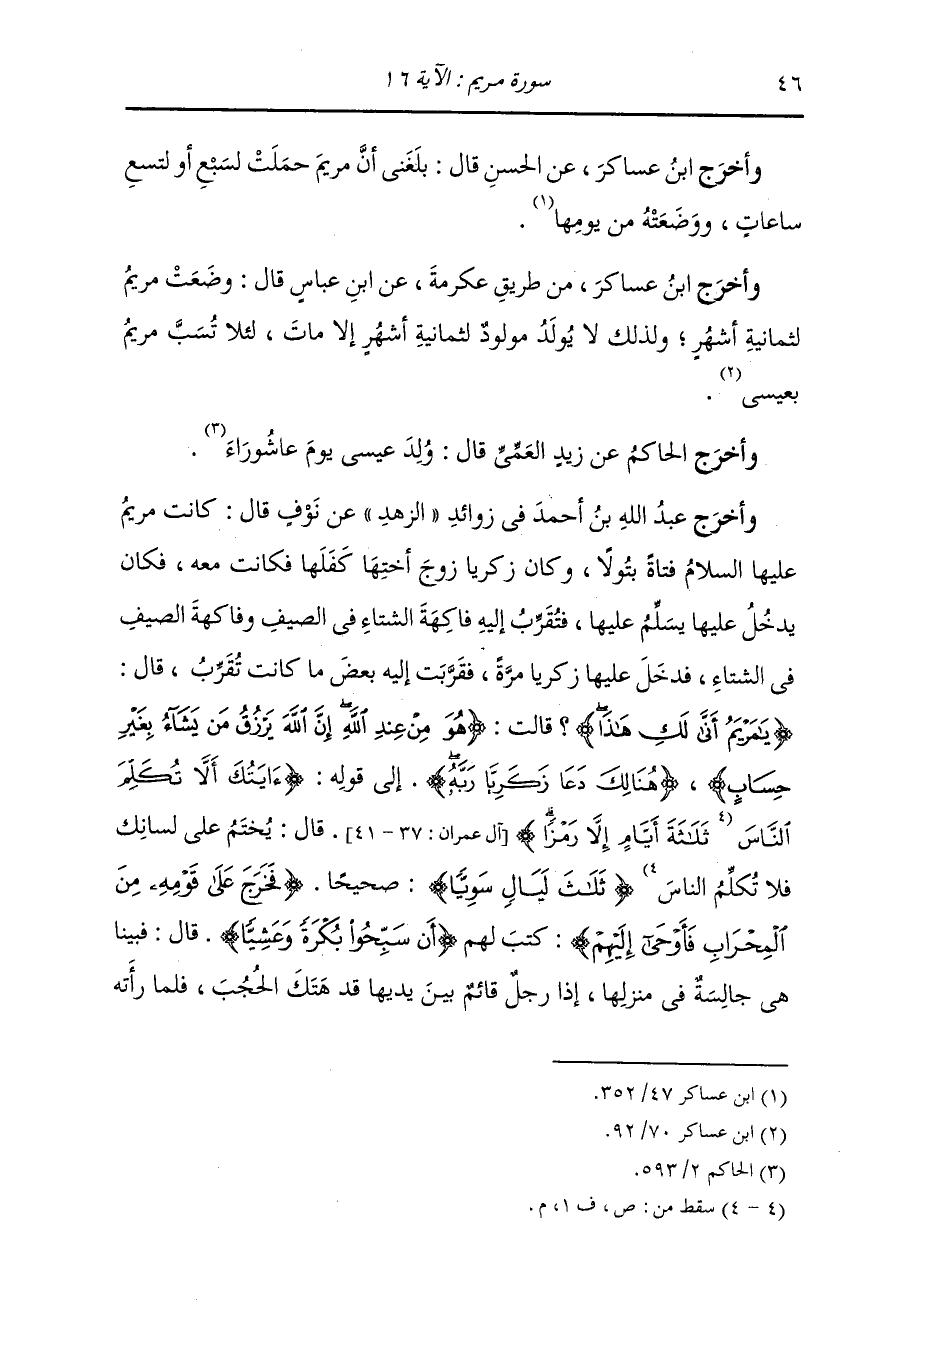 ٤٦ سورة مريم : الآية ١٦
وأخرَج ابنُ عساكرَ ، عن الحسنِ قال : بلَغَنى أنَّ مريمَ حمَلَتْ لسَبْعِ أو لتسعِ
ساعاتٍ ، ووَضَعَتْهُ من يومِها(١) .
وأخرَج ابنُ عساكرَ ، من طريقِ عكرمةَ ، عن ابنِ عباسٍ قال : وضَعَتْ مريمُ
لثمانيةِ أشهُرٍ ؛ ولذلك لا يُولَدُ مولودٌ لثمانيةِ أشهُرٍ إلا ماتَ ، لئلا تُسَبَّ مريمُ
بعيسى(٢) .
وأخرَج الحاكمُ عن زيدٍ العَمِّىِّ قال : وُلِدَ عيسى يومَ عاشُورَاءَ(٣) .
وأخرَج عبدُ اللهِ بنُ أحمدَ فى زوائدِ « الزهدِ » عن نَوْفٍ قال : كانت مريمُ
عليها السلامُ فتاةً بتُولًا ، وكان زكريا زوجَ أختِهَا كَفَلَها فكانت معه ، فكان
يدخُلُ عليها يسَلِّمُ عليها ، فتُقَرِّبُ إليهِ فاكِهَةَ الشتاءِ فى الصيفِ وفاكهةَ الصيفِ
فى الشتاءِ ، فدخَلَ عليها زكريا مرَّةً ، فقَرَّبَت إليه بعضَ ما كانت تُقَرِّبُ ، قال :
﴿يَٰمَرْيَمُ أَنَّىٰ لَكِ هَٰذَاۖ﴾ ؟ قالت : ﴿هُوَ مِنْ عِندِ ٱللَّهِۖ إِنَّ ٱللَّهَ يَرْزُقُ مَن يَشَآءُ بِغَيْرِ
حِسَابٍ﴾ ، ﴿هُنَالِكَ دَعَا زَكَرِيَّا رَبَّهُۥۖ﴾ . إلى قولِه : ﴿ءَايَتُكَ أَلَّا تُكَلِّمَ
ٱلنَّاسَ (٤ ثَلَٰثَةَ أَيَّامٍ إِلَّا رَمْزًاۗ﴾ [آل عمران : ٣٧ – ٤١] . قال : يُختَمُ على لسانِك
فلا تُكلِّمُ الناسَ ٤) ﴿ثَلَٰثَ لَيَالٍ سَوِيًّا﴾ : صحيحًا . ﴿فَخَرَجَ عَلَىٰ قَوْمِهِۦ مِنَ
ٱلْمِحْرَابِ فَأَوْحَىٰٓ إِلَيْهِمْ﴾ : كتبَ لهم ﴿أَن سَبِّحُوا۟ بُكْرَةً وَعَشِيًّا﴾ . قال : فبينا
هى جالِسَةٌ فى منزلِها ، إذا رجلٌ قائمٌ بينَ يديها قد هَتَكَ الحُجُبَ ، فلما رأَته
(١) ابن عساكر ٤٧/ ٣٥٢.
(٢) ابن عساكر ٧٠/ ٩٢.
(٣) الحاكم ٢/ ٥٩٣.
(٤ – ٤) سقط من : ص ، ف ١ ، م .